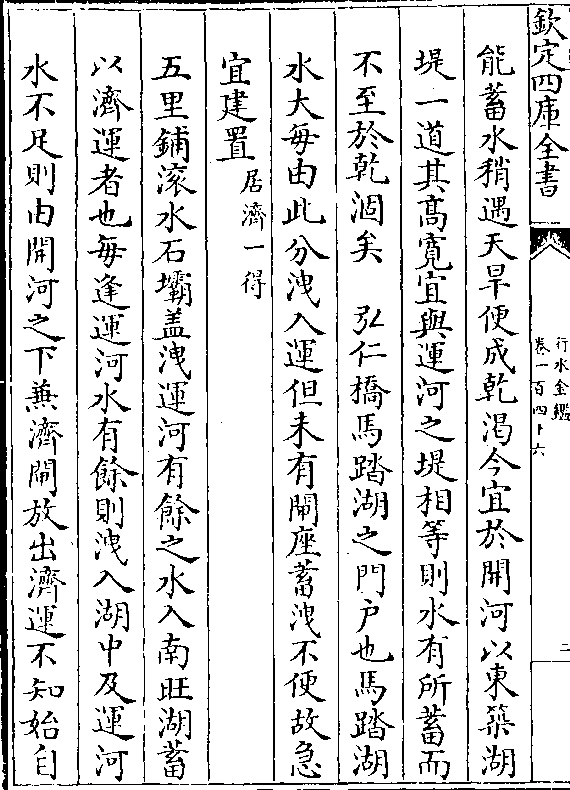 欽定四庫全書
行水金鑑
卷一百四十六
二
能蓄水稍遇天旱便成乾渴今宜於開河以東築湖
堤一道其髙寛宜與運河之堤相等則水有所蓄而
不至於乾涸矣　弘仁橋馬踏湖之門户也馬踏湖
水大每由此分洩入運但未有閘座蓄洩不便故急
宜建置居濟一得
五里鋪滚水石壩盖洩運河有餘之水入南旺湖蓄
以濟運者也每逢運河水有餘則洩入湖中及運河
水不足則由開河之下兼濟閘放出濟運不知始自